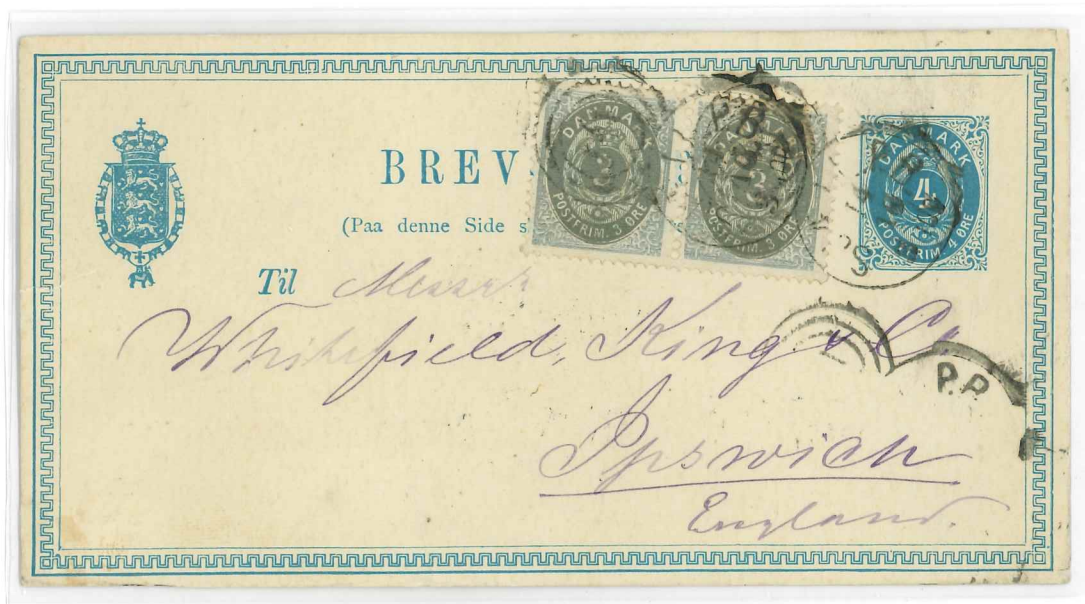 BREV
(Paa denne Side
DANMARK
3
POSTFRIM. 3 ØRE
DANMARK
3
POSTFRIM. 3 ØRE
DANMARK
4
POSTFRIM. 4 ØRE
Til Messrs
Whitefield, King & Co
P.P.
Ipswich
England.